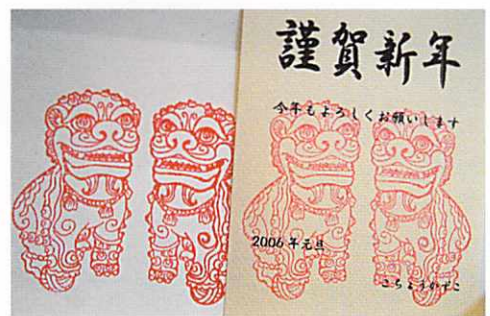 謹賀新年
今年もよろしくお願いします
2006年元旦
こちょうかずこ